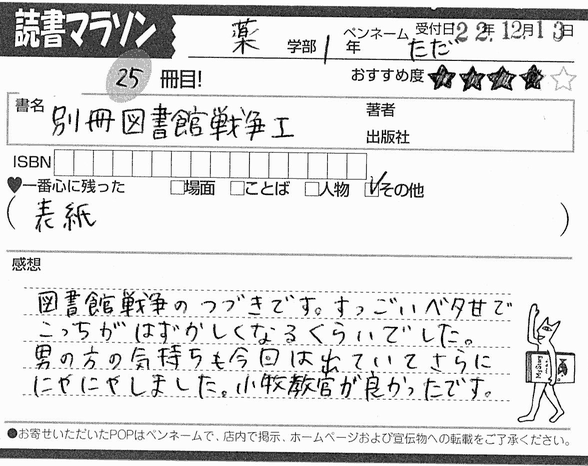 読書マラソン
薬 学部 1 年 ペンネーム ただ 受付日 22年12月13日
25 冊目! おすすめ度 ★★★★☆
書名 別冊図書館戦争I 著者
出版社
ISBN
♥一番心に残った □場面 □ことば □人物 ☑その他
(表紙)
感想
図書館戦争のつづきです。すっごいベタ甘で
こっちがはずかしくなるくらいでした。
男の方の気持ちも今回は出ていてさらに
にやにやしました。小牧教官が良かったです。
●お寄せいただいたPOPはペンネームで、店内で掲示、ホームページおよび宣伝物への転載をご了承ください。